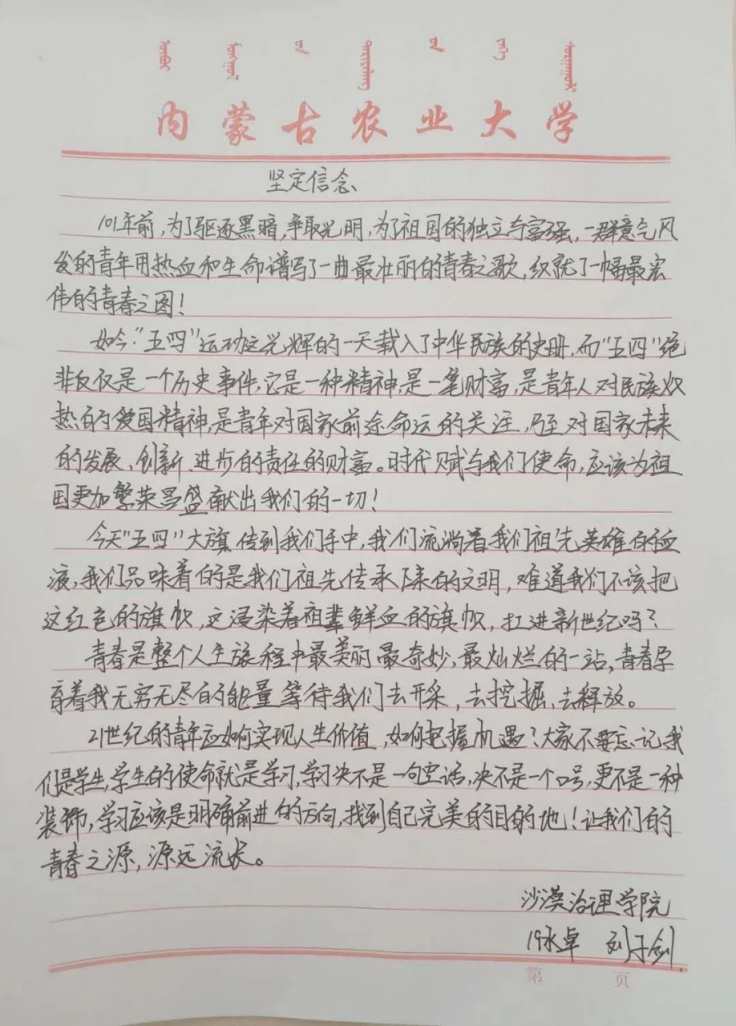 内蒙古农业大学
坚定信念
101年前,为了驱逐黑暗,争取光明,为了祖国的独立与富强,一群意气风
发的青年用热血和生命谱写了一曲最壮丽的青春之歌,织就了一幅最宏
伟的青春之图!
如今“五四”运动这光辉的一天载入了中华民族的史册,而“五四”绝
非仅仅是一个历史事件,它是一种精神,是一笔财富,是青年人对民族炽
热的爱国精神,是青年对国家前途命运的关注,乃至对国家未来
的发展、创新、进步的责任的财富。时代赋与我们使命,应该为祖
国更加繁荣昌盛献出我们的一切!
今天“五四”大旗传到我们手中,我们流淌着我们祖先英雄的血
液,我们品味着的是我们祖先传承下来的文明,难道我们不该把
这红色的旗帜,这浸染着祖辈鲜血的旗帜,扛进新世纪吗?
青春是整个人生旅程中最美丽最奇妙,最灿烂的一站,青春孕
育着我无穷无尽的能量等待我们去开采,去挖掘,去释放。
21世纪的青年应如何实现人生价值,如何把握机遇?大家不要忘记我
们是学生,学生的使命就是学习,学习决不是一句空话,决不是一个口号,更不是一种
装饰,学习应该是明确前进的方向,找到自己完美的目的地!让我们的
青春之源,源远流长。
沙漠治理学院
19水卓 刘子剑
第 页